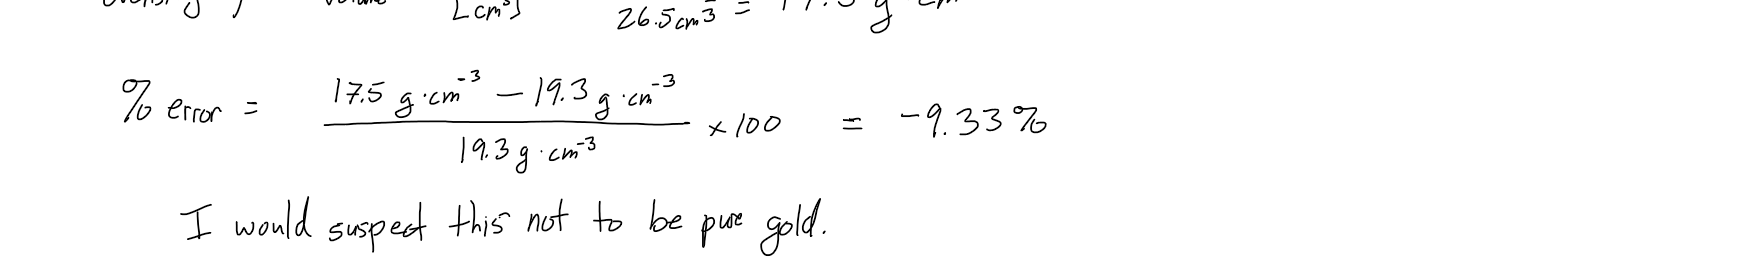 volume [cm³] 26.5cm³ = 17.5 g
% error = 17.5 g·cm⁻³ − 19.3 g·cm⁻³ / 19.3 g·cm⁻³ × 100 = -9.33%
I would suspect this not to be pure gold.